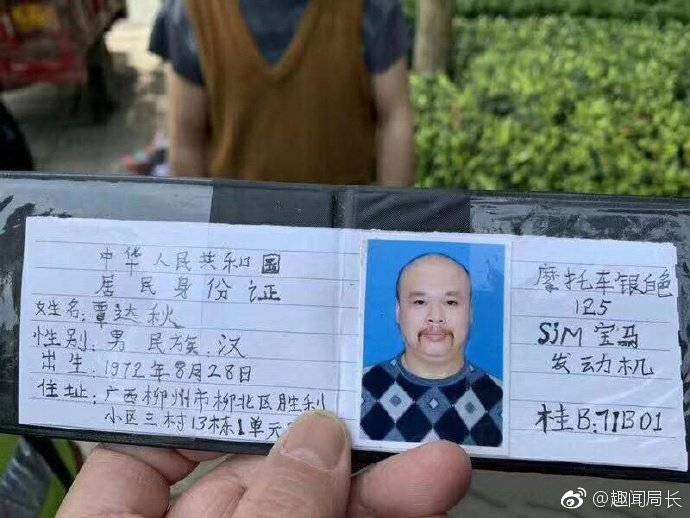 中华人民共和国
居民身份证
姓名:覃达秋
性别:男 民族:汉
出生:1972年8月28日
住址:广西柳州市柳北区胜利
小区三村13栋1单元
摩托车银色
125
SJM宝马
发动机
桂B:71B01
@趣闻局长